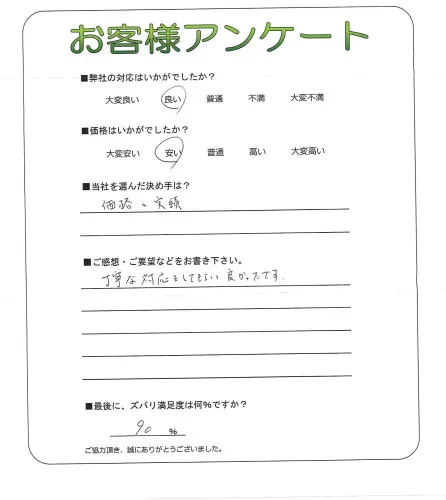 お客様アンケート
■弊社の対応はいかがでしたか?
大変良い 良い 普通 不満 大変不満
■価格はいかがでしたか?
大変安い 安い 普通 高い 大変高い
■当社を選んだ決め手は?
価格と実績
■ご感想・ご要望などをお書き下さい。
丁寧な対応をしてもらい良かったです.
■最後に、ズバリ満足度は何%ですか?
90 %
ご協力頂き、誠にありがとうございました。